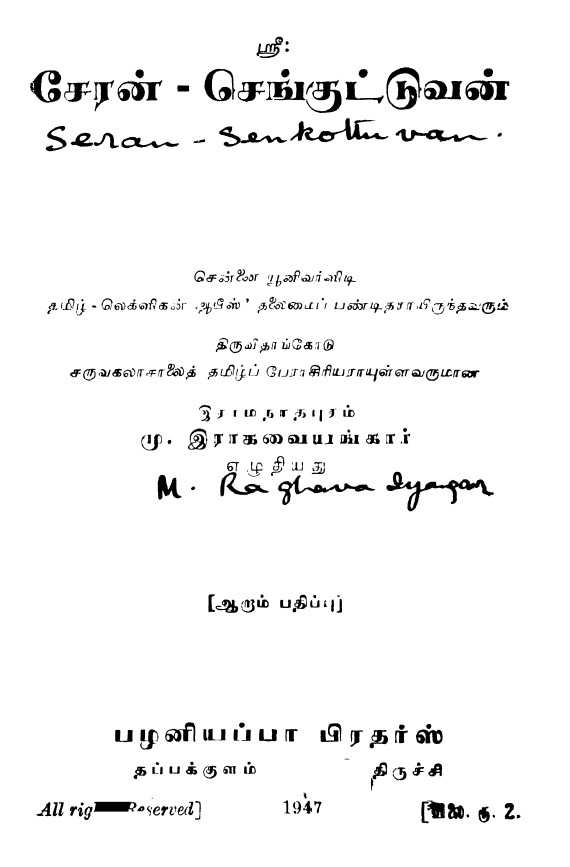 ஸ்ரீ:
சேரன் - செங்குட்டுவன்
Seran - Senkottuvan.
சென்னை யூனிவர்ஸிடி
தமிழ் - லெக்ஸிகன் ஆபீஸ்' தலைமைப் பண்டிதராயிருந்தவரும்
திருவிதாங்கோடு
சருவகலாசாலைத் தமிழ்ப் பேராசிரியராயுள்ளவருமான
இராமநாதபுரம்
மு. இராகவையங்கார்
எழுதியது
M. Raghava Iyangar
[ஆறாம் பதிப்பு]
பழனியப்பா பிரதர்ஸ்
தப்பக்குளம் திருச்சி
All Reserved] 1947 [விலை. ரூ. 2.